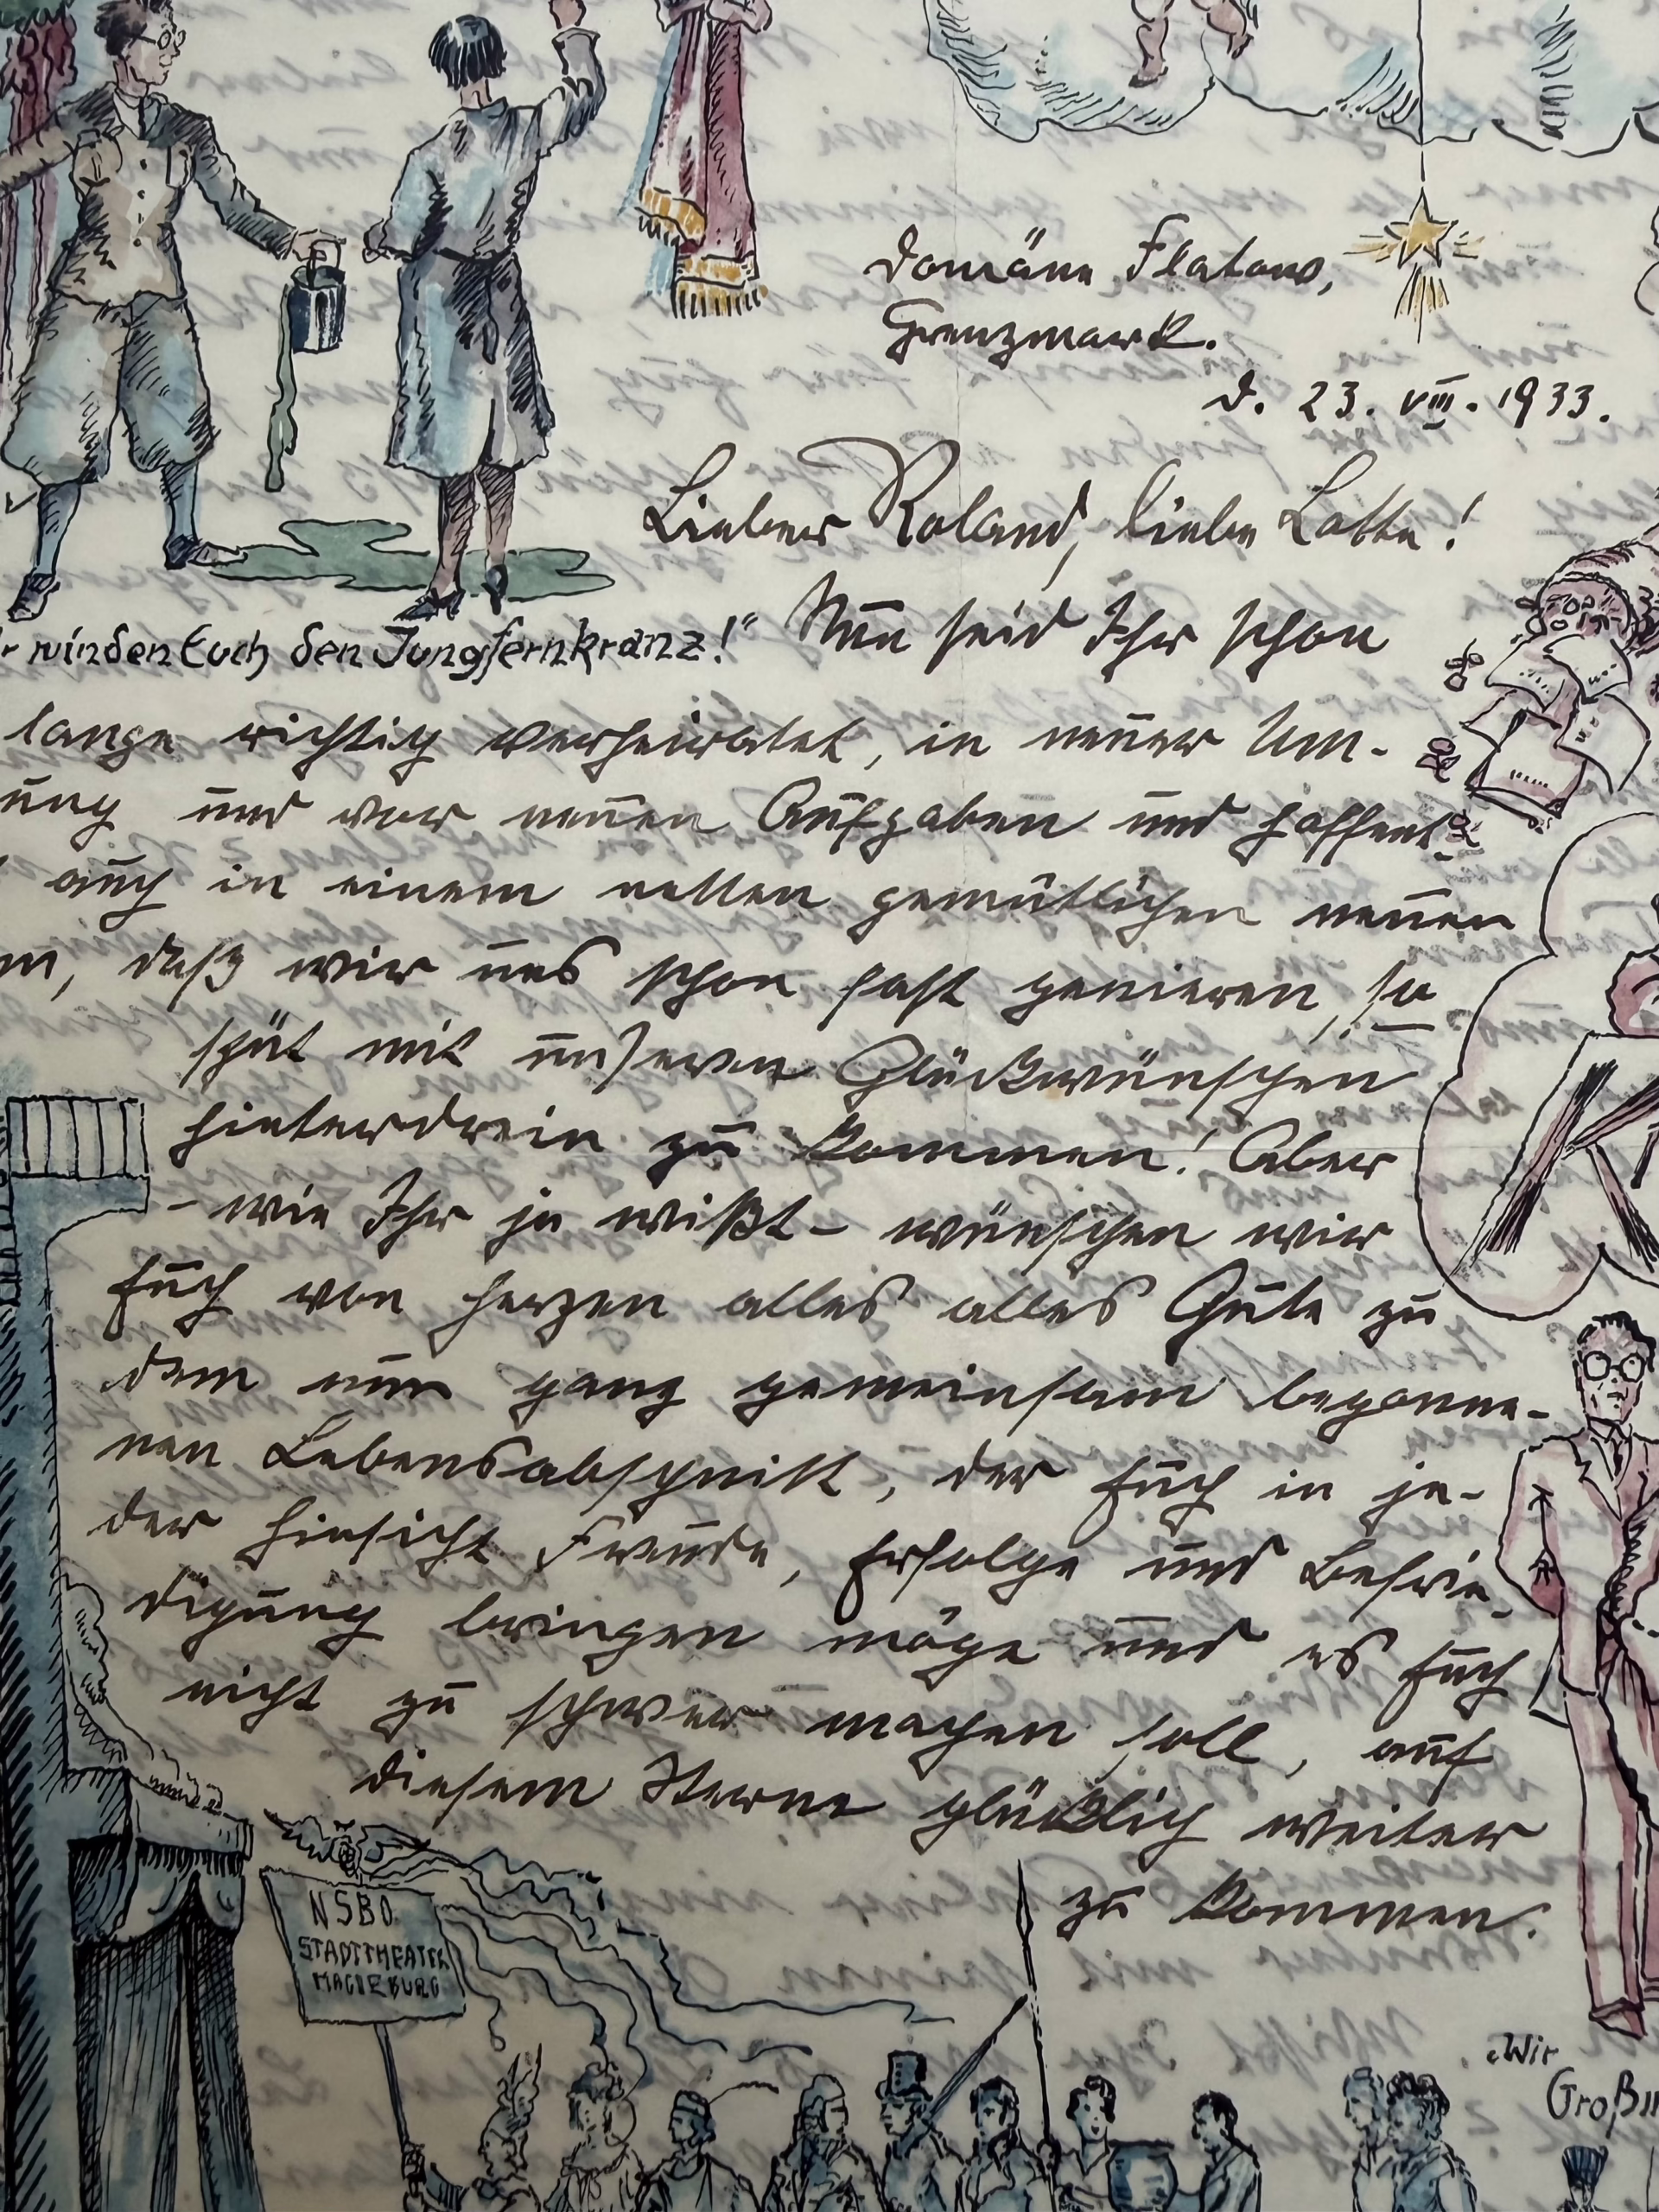 Domäne Flatow,
Grenzmark.
d. 23. VIII. 1933.
Lieber Roland, liebe Lotte!
winden Euch den Jungfernkranz!" Nun seid Ihr schon
lange richtig verheiratet, in neuer Um-
ung und vor neuen Aufgaben und hoffent-
auch in einem netten gemütlichen neuen
m, daß wir uns schon fast genieren, so
spät mit unseren Glückwünschen
hinterdrein zu kommen! Aber
- wie Ihr ja wißt - wünschen wir
Euch von Herzen alles alles Gute zu
dem nun ganz gemeinsam begonne-
nen Lebensabschnitt, der Euch in je-
der Hinsicht Freude, Erfolge und Befrie-
digung bringen möge und es Euch
nicht zu schwer machen soll, auf
diesem Sterne glücklich weiter
zu kommen.
NSBO.
STADTTHEATER
MAGDEBURG
„Wir